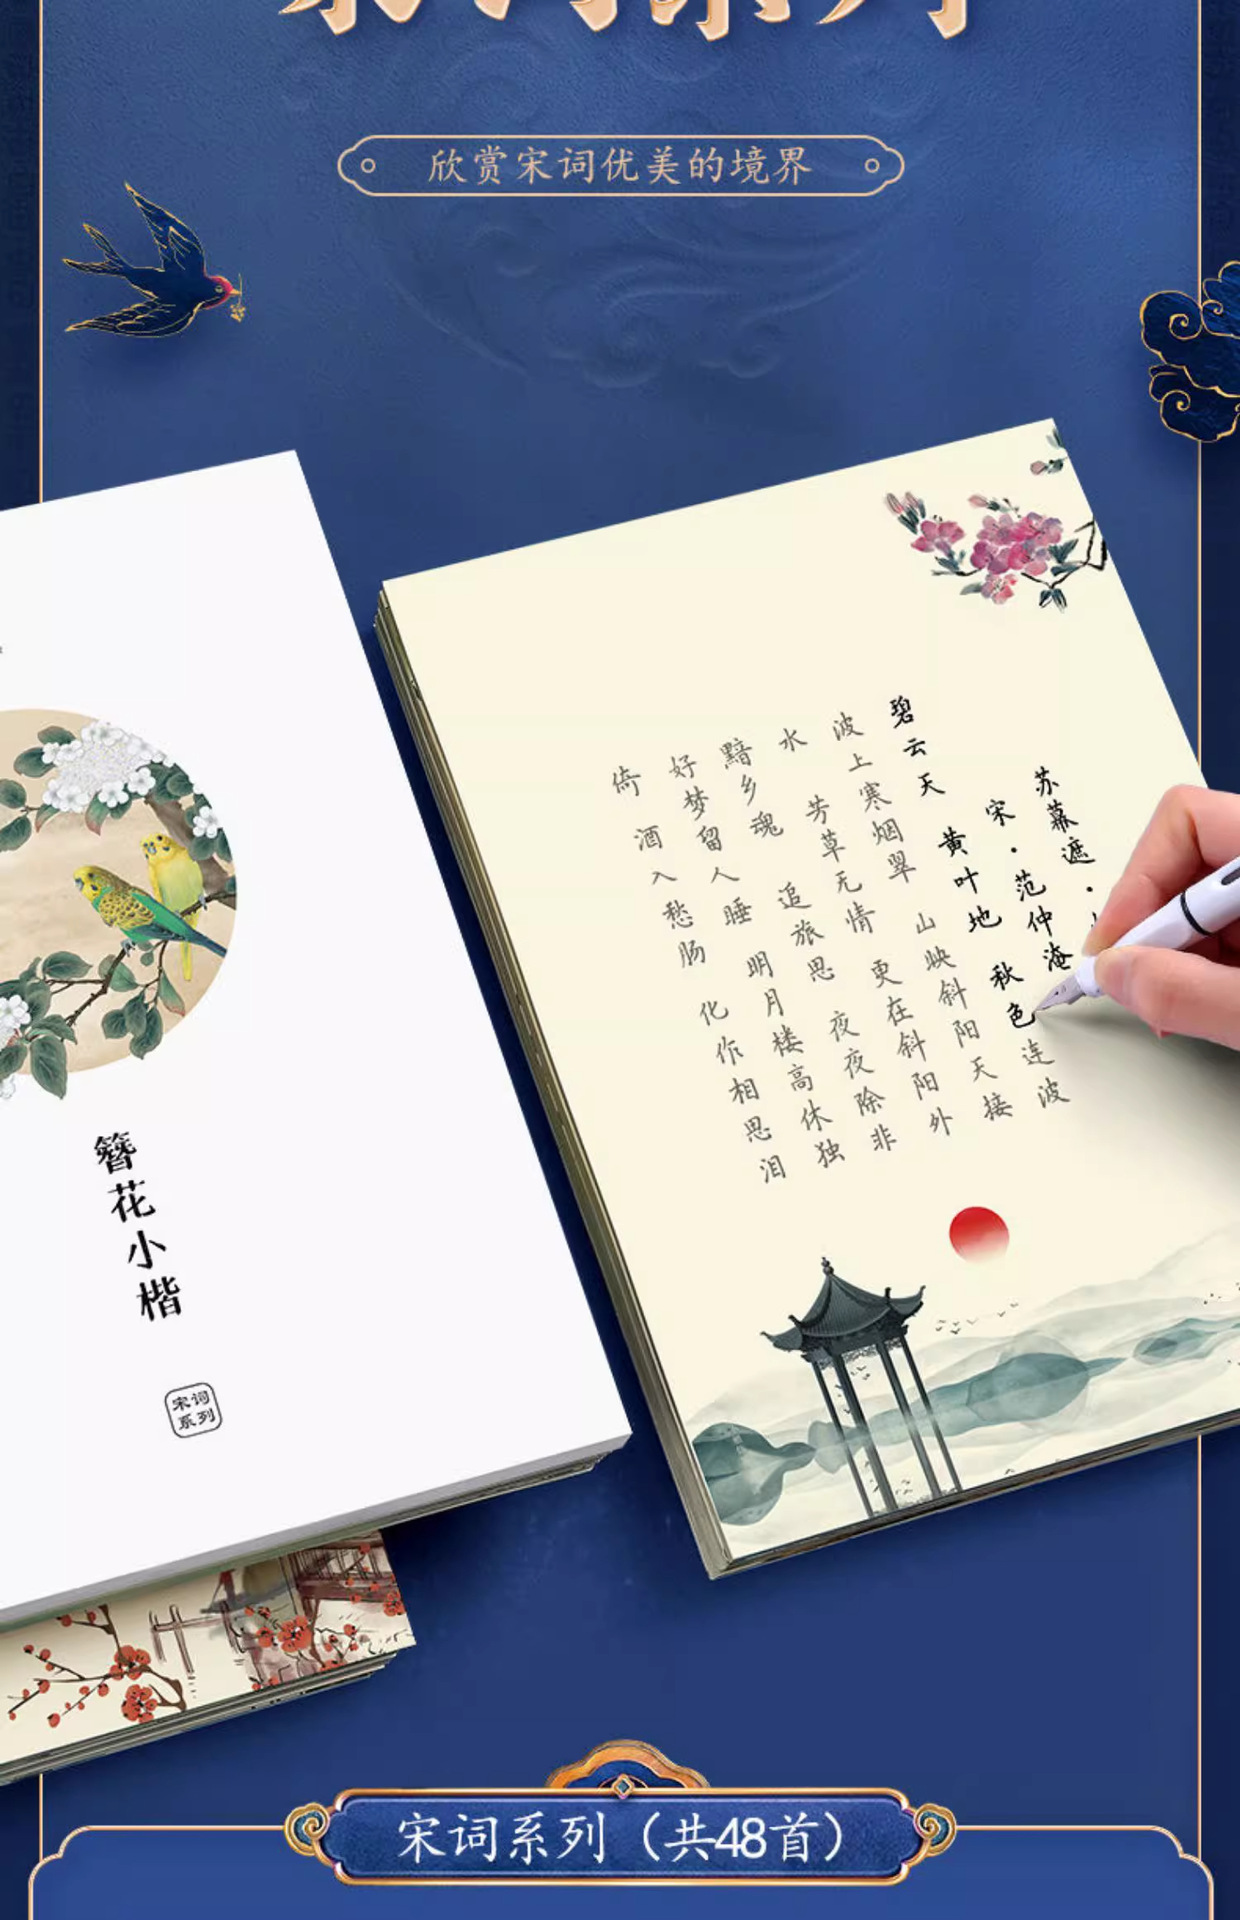 欣赏宋词优美的境界
苏幕遮·
宋·范仲淹
碧云天 黄叶地 秋色连波
波上寒烟翠 山映斜阳天接
水 芳草无情 更在斜阳外
黯乡魂 追旅思 夜夜除非
好梦留人睡 明月楼高休独
倚 酒入愁肠 化作相思泪
簪花小楷
宋词
系列
宋词系列（共48首）